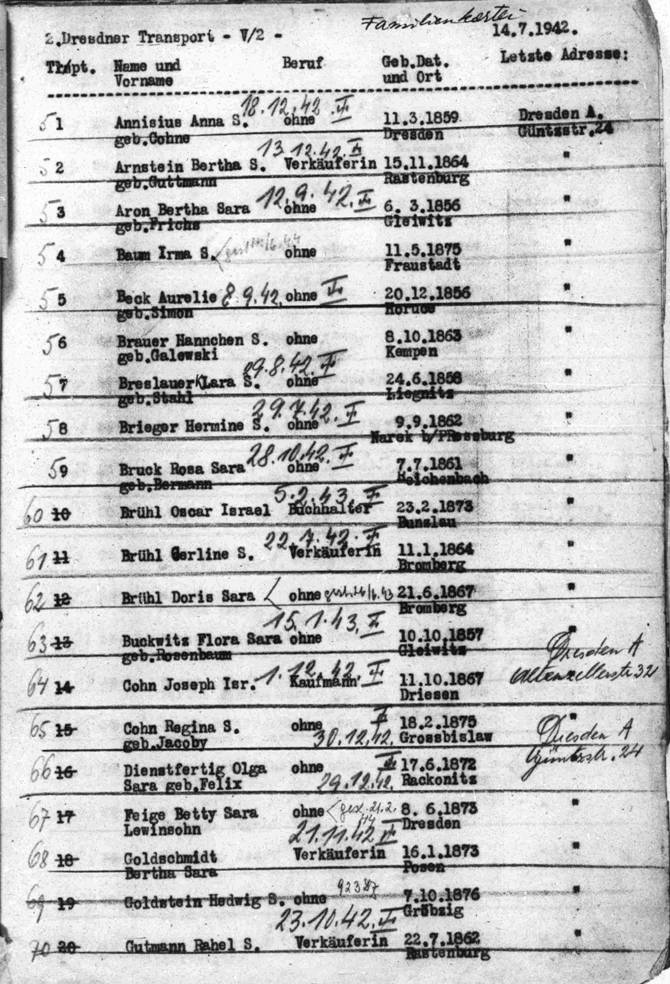 Familienkartei
2.Dresdner Transport - V/2 - 14.7.1942.
Trspt. Name und Beruf Geb.Dat. Letzte Adresse:
Vorname und Ort
18.12.42
51 Annisius Anna S. ohne 11.3.1859 Dresden A.
geb.Cohne Dresden Güntzstr.24
13.12.42
52 Arnstein Bertha S. Verkäuferin 15.11.1864 "
geb.Guttmann Rastenburg
12.9.42.
53 Aron Bertha Sara ohne 6. 3.1856 "
geb.Frichs Gleiwitz
54 Baum Irma S. ohne 11.5.1875 "
Fraustadt
55 Beck Aurelie 8.9.42. ohne 20.12.1856 "
geb.Simon
56 Brauer Hannchen S. ohne 8.10.1863 "
geb.Galewski Kempen
29.8.42.
57 Breslauer Klara S. ohne 24.6.1858 "
geb.Stahl Liegnitz
29.7.42.
58 Brieger Hermine S. ohne 9.9.1862 "
Narek b/PRessburg
28.10.42.
59 Bruck Rosa Sara ohne 7.7.1861 "
geb.Bermann Reichenbach
5.2.43.
60 10 Brühl Oscar Israel Buchhalter 23.2.1873 "
Bunzlau
22.7.42.
61 11 Brühl Gerline S. Verkäuferin 11.1.1864 "
Bromberg
62 12 Brühl Doris Sara ohne 21.6.1867 "
Bromberg
15.1.43.
63 13 Buckwitz Flora Sara ohne 10.10.1857 Dresden A
geb.Rosenbaum Gleiwitz Altenzellerstr 32
1.12.42.
64 14 Cohn Joseph Isr. Kaufmann 11.10.1867
Driesen
65 15 Cohn Regina S. ohne 18.2.1875 " Dresden A
geb.Jacoby 30.12.42. Grossbislaw Güntzstr. 24
66 16 Dienstfertig Olga ohne 17.6.1872
Sara geb.Felix 29.12.42. Rackonitz
67 17 Feige Betty Sara ohne 8. 6.1873 "
Lewinsohn Dresden
21.11.42
68 18 Goldschmidt Verkäuferin 16.1.1873 "
Bertha Sara Posen
69 19 Goldstein Hedwig S. ohne 7.10.1876 "
Gröbzig
23.10.42.
70 20 Gutmann Rahel S. Verkäuferin 22.7.1862 "
Rastenburg